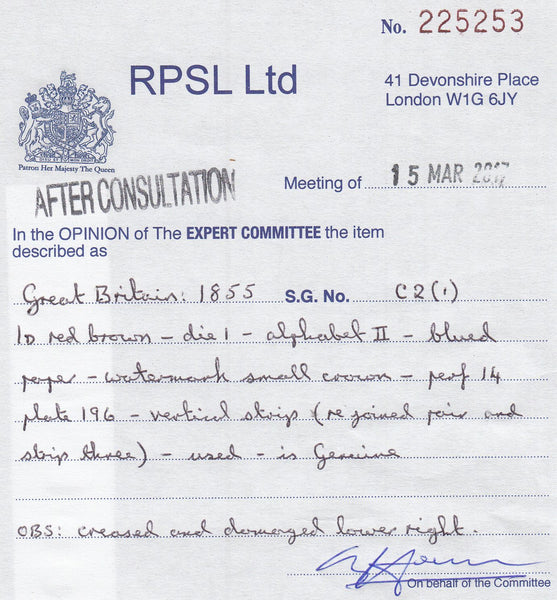 No. 225253
RPSL Ltd
41 Devonshire Place
London W1G 6JY
Patron Her Majesty The Queen
AFTER CONSULTATION
Meeting of 15 MAR 2017
In the OPINION of The EXPERT COMMITTEE the item
described as
Great Britain: 1855 S.G. No. C2(1)
1D red brown - die 1 - alphabet II - blued
paper - watermark small crown - perf 14
plate 196 - vertical strip (rejoined pair and
strip three) - used - is Genuine
OBS: creased and damaged lower right.
On behalf of the Committee